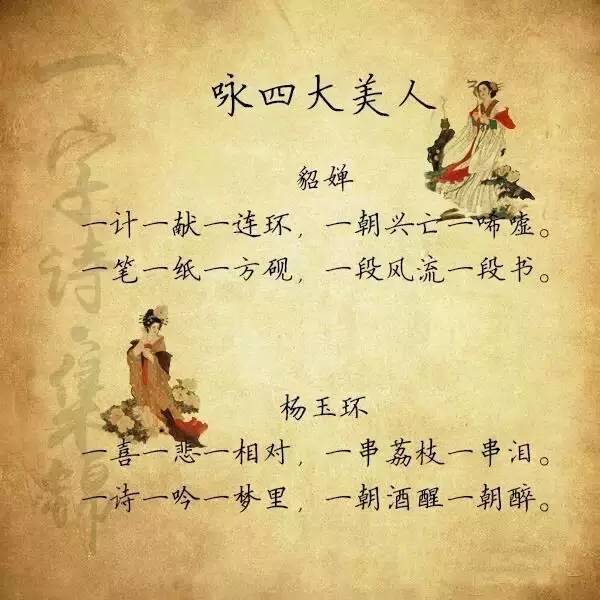 咏四大美人
貂婵
一计一献一连环，一朝兴亡一唏嘘。
一笔一纸一方砚，一段风流一段书。
杨玉环
一喜一悲一相对，一串荔枝一串泪。
一诗一吟一梦里，一朝酒醒一朝醉。
一字诗集锦